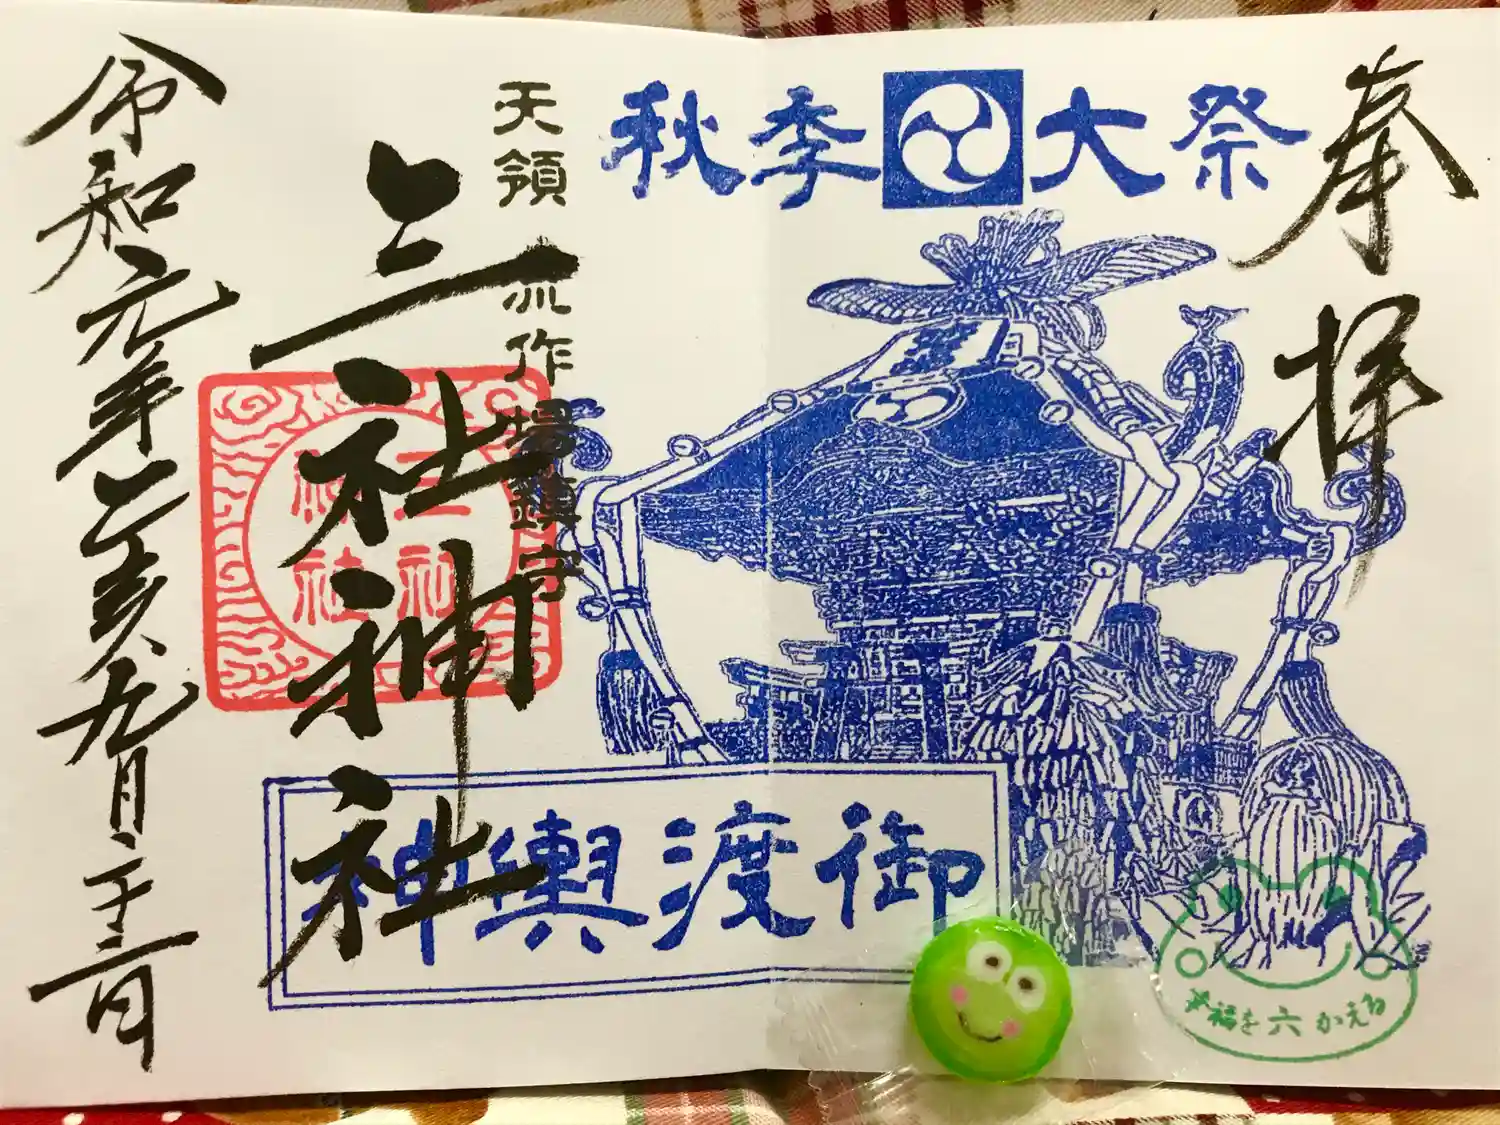 奉拝
秋季大祭
天領 流作場鎮守
三社神社
三社神社
神輿渡御
令和元年己亥九月二十二日
幸福を六かえる